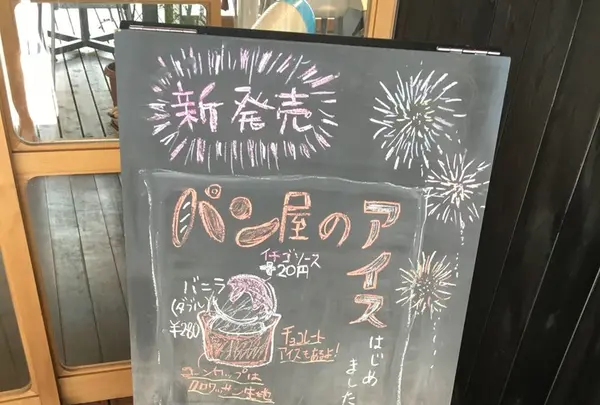 新発売
パン屋のアイス
はじめました
イチゴソース
+20円
バニラ
(ダブル)
¥280
チョコレート
アイスもあるよ!
コーンカップは
クロワッサン生地